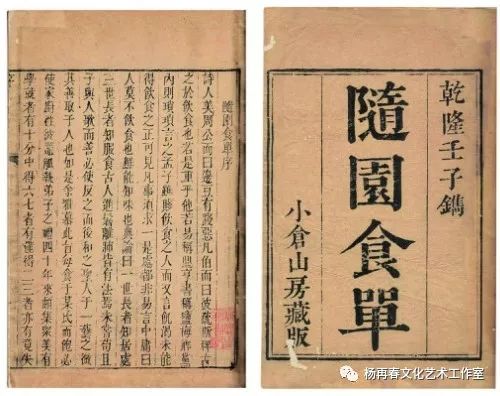 乾隆壬子鐫
隨園食單
小倉山房藏版
隨園食單序
詩人美周公而曰籩豆有踐惡凡伯而曰彼疏斯稗古
之於飲食也若是重乎他若易稱鼎亨書稱鹽梅鄉黨
內則瑣瑣言之孟子雖賤飲食之人而又言飢渴未能
得飲食之正可見凡事須求一是處都非易言中庸曰
人莫不飲食也鮮能知味也典論曰一世長者知居處
三世長者知服食古人進鬐離肺皆有法焉未嘗苟且
子與人歌而善必使反之而後和之聖人于一藝之微
其善取于人也如是余雅慕此旨每食于某氏而飽必
使家廚往彼灶觚執弟子之禮四十年來頗集眾美有
學就者有十分中得六七者有僅得二三者亦有竟失
杨再春文化艺术工作室